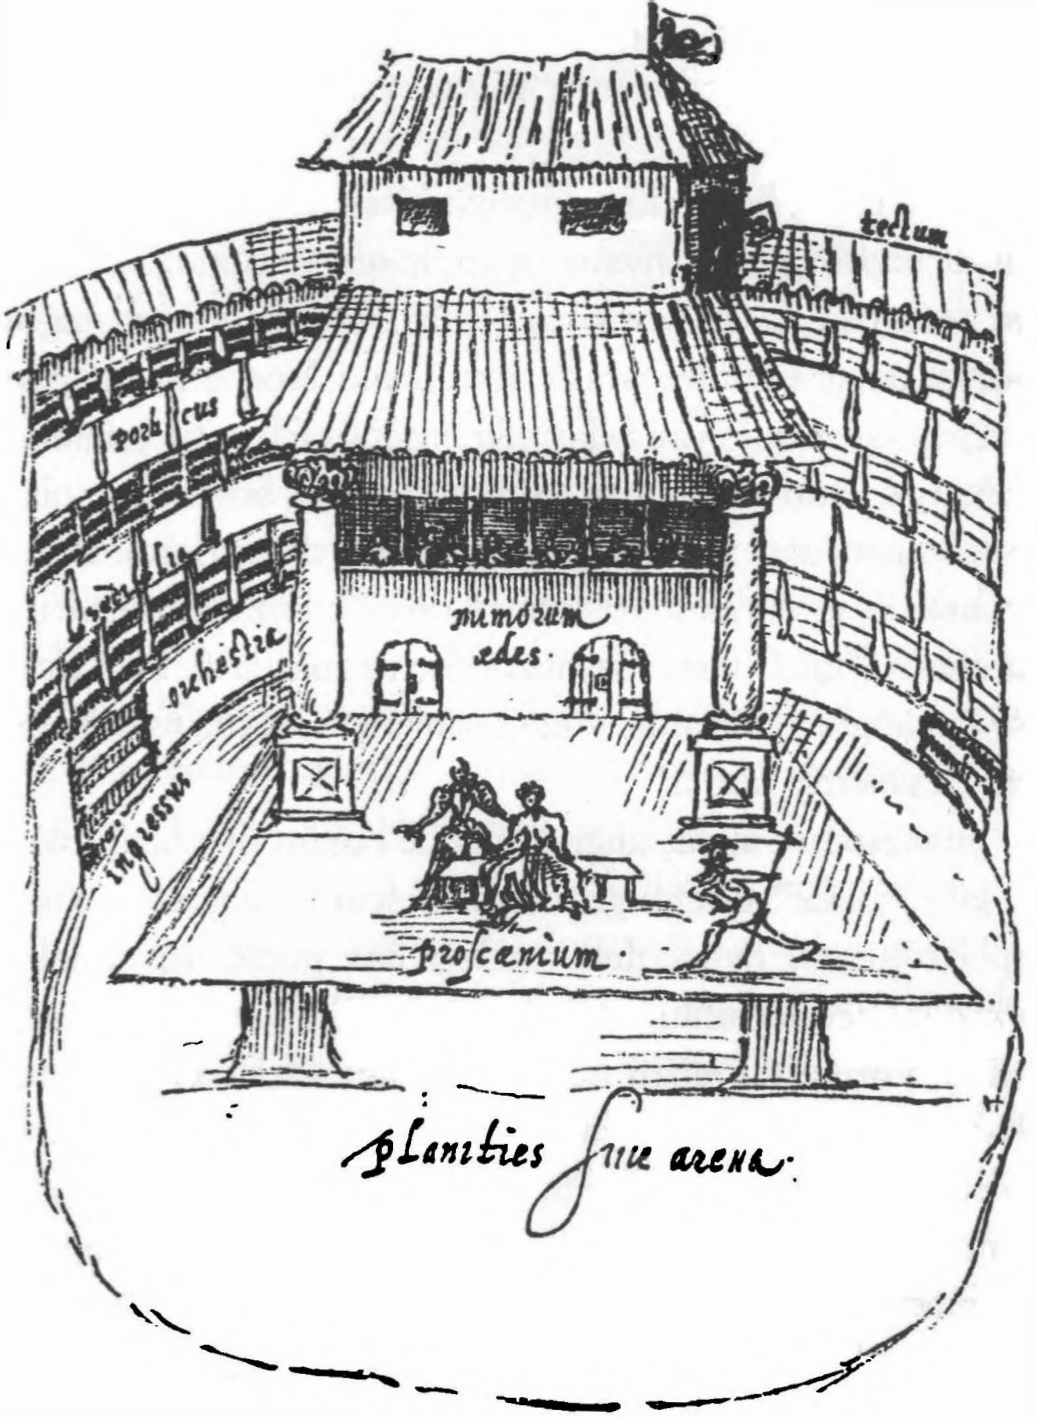 tectum
porticus
sedilia
orchestra
mimorum
ædes.
ingressus
proscænium
planities siue arena.